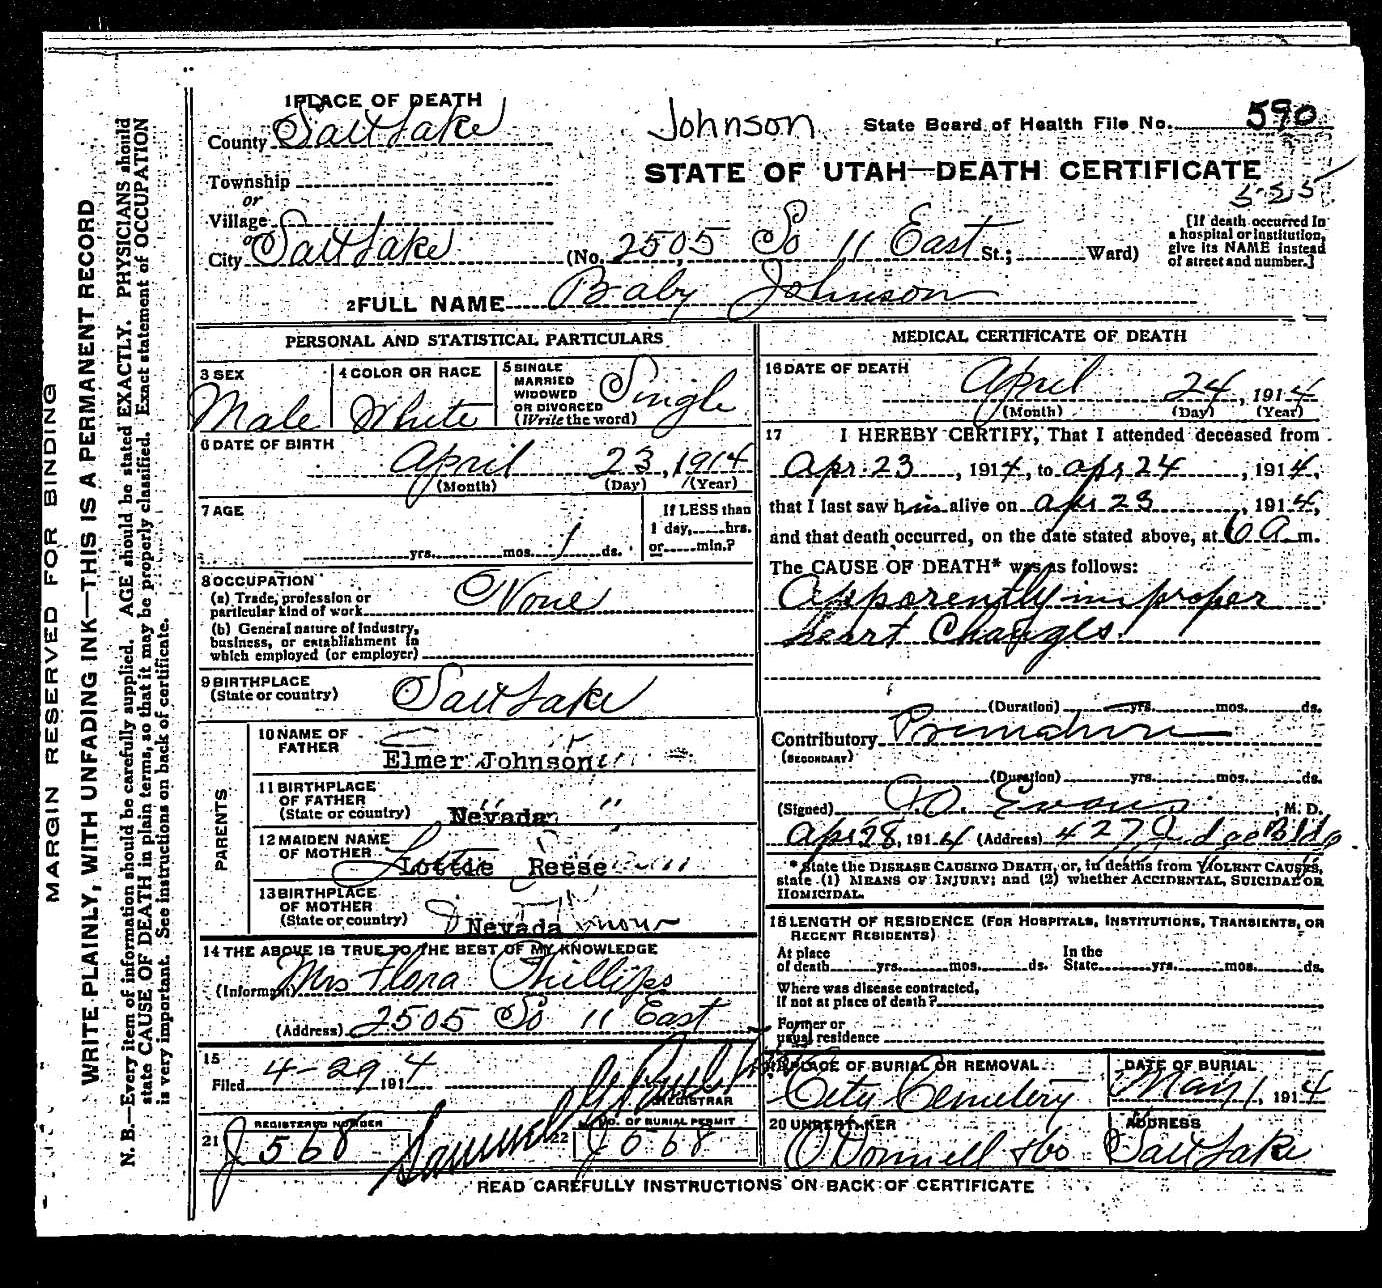 MARGIN RESERVED FOR BINDING
WRITE PLAINLY, WITH UNFADING INK—THIS IS A PERMANENT RECORD
N. B.—Every item of information should be carefully supplied. AGE should be stated EXACTLY. PHYSICIANS should
state CAUSE OF DEATH in plain terms, so that it may be properly classified. Exact statement of OCCUPATION
is very important. See instructions on back of certificate.
1 PLACE OF DEATH
County Salt Lake
Township
or
Village
or
City Salt Lake
Johnson
State Board of Health File No. 590
STATE OF UTAH—DEATH CERTIFICATE
525
(No. 2505 So 11 East St.; Ward)
[If death occurred in
a hospital or institution,
give its NAME instead
of street and number.]
2 FULL NAME Baby Johnson
PERSONAL AND STATISTICAL PARTICULARS
3 SEX
Male
4 COLOR OR RACE
White
5 SINGLE
MARRIED
WIDOWED
OR DIVORCED
(Write the word)
Single
6 DATE OF BIRTH
April 23, 1914
(Month) (Day) (Year)
7 AGE
yrs. mos. 1 ds.
If LESS than
1 day, hrs.
or min.?
8 OCCUPATION
(a) Trade, profession or
particular kind of work
None
(b) General nature of industry,
business, or establishment in
which employed (or employer)
9 BIRTHPLACE
(State or country)
Salt Lake
PARENTS
10 NAME OF
FATHER
Elmer Johnson
11 BIRTHPLACE
OF FATHER
(State or country)
Nevada
12 MAIDEN NAME
OF MOTHER
Lottie Reese
13 BIRTHPLACE
OF MOTHER
(State or country)
Nevada
14 THE ABOVE IS TRUE TO THE BEST OF MY KNOWLEDGE
(Informant) Mrs Flora Phillips
(Address) 2505 So 11 East
15
Filed 4-29 1914
REGISTRAR
21
REGISTERED NUMBER
J 568
Samuel
22
NO. OF BURIAL PERMIT
J 568
MEDICAL CERTIFICATE OF DEATH
16 DATE OF DEATH
April 24, 1914
(Month) (Day) (Year)
17 I HEREBY CERTIFY, That I attended deceased from
Apr 23, 1914, to Apr 24, 1914,
that I last saw him alive on Apr 23, 1914,
and that death occurred, on the date stated above, at 6 A m.
The CAUSE OF DEATH* was as follows:
Apparently improper
heart Changes.
(Duration) yrs. mos. ds.
Contributory
(SECONDARY)
(Duration) yrs. mos. ds.
(Signed) Evans M. D.
Apr 28, 1914 (Address) 427 Judge Bldg
* State the DISEASE CAUSING DEATH, or, in deaths from VIOLENT CAUSES,
state (1) MEANS OF INJURY; and (2) whether ACCIDENTAL, SUICIDAL OR
HOMICIDAL.
18 LENGTH OF RESIDENCE (FOR HOSPITALS, INSTITUTIONS, TRANSIENTS, OR
RECENT RESIDENTS)
At place
of death yrs. mos. ds.
In the
State yrs. mos. ds.
Where was disease contracted,
if not at place of death?
Former or
usual residence
19 PLACE OF BURIAL OR REMOVAL
City Cemetery
DATE OF BURIAL
May 1, 1914
20 UNDERTAKER
O'Donnell & Co
ADDRESS
Salt Lake
READ CAREFULLY INSTRUCTIONS ON BACK OF CERTIFICATE